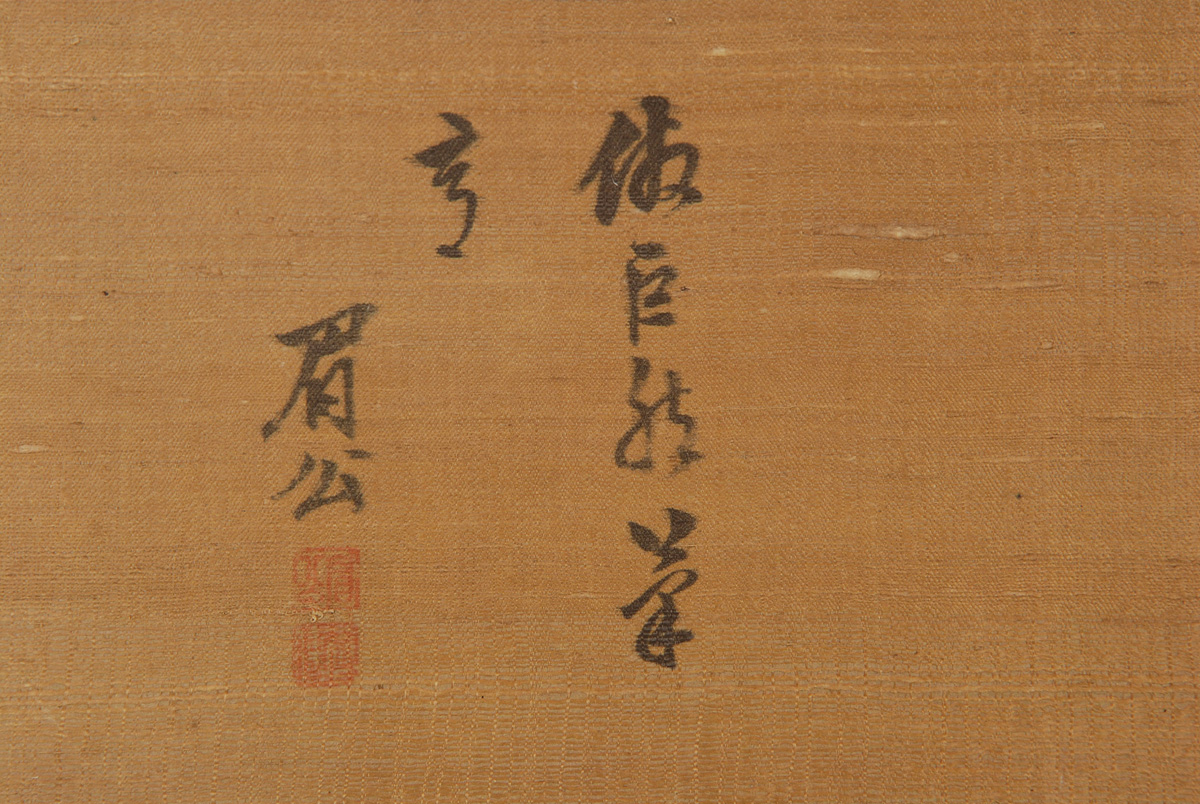 倣巨然筆
意
眉公